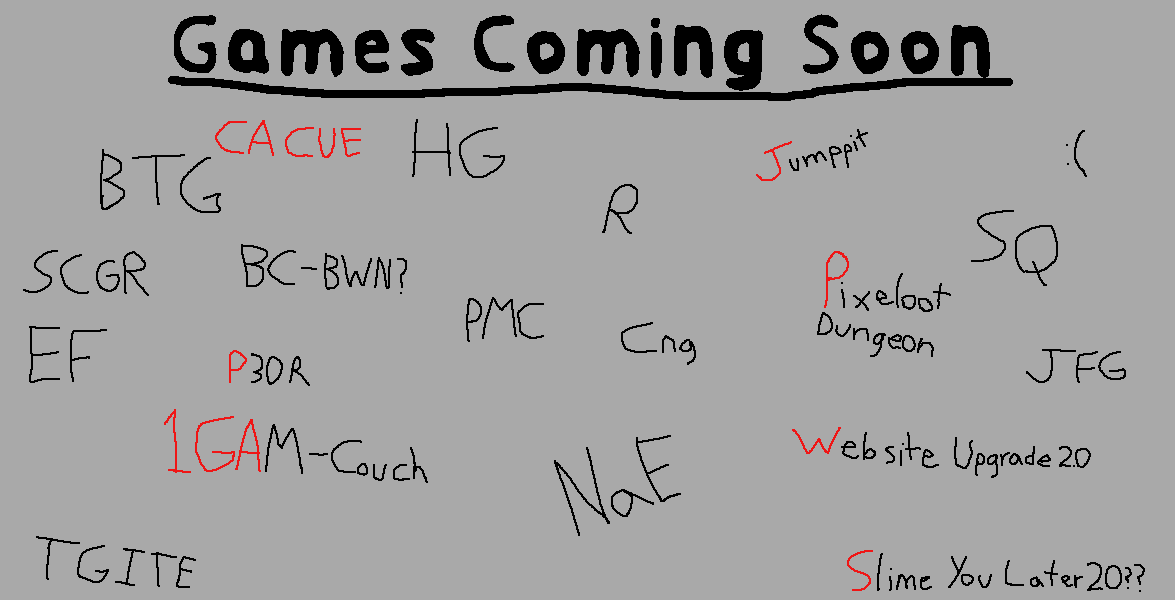 Games Coming Soon
CACUE
HG
Jumppit
:(
BTG
R
SQ
SCGR
BC-BWN?
Pixeloot
Dungeon
PMC
Cng
EF
P30R
JFG
1GAM-Couch
Website Upgrade 2.0
NaE
TGITE
Slime You Later 2.0??